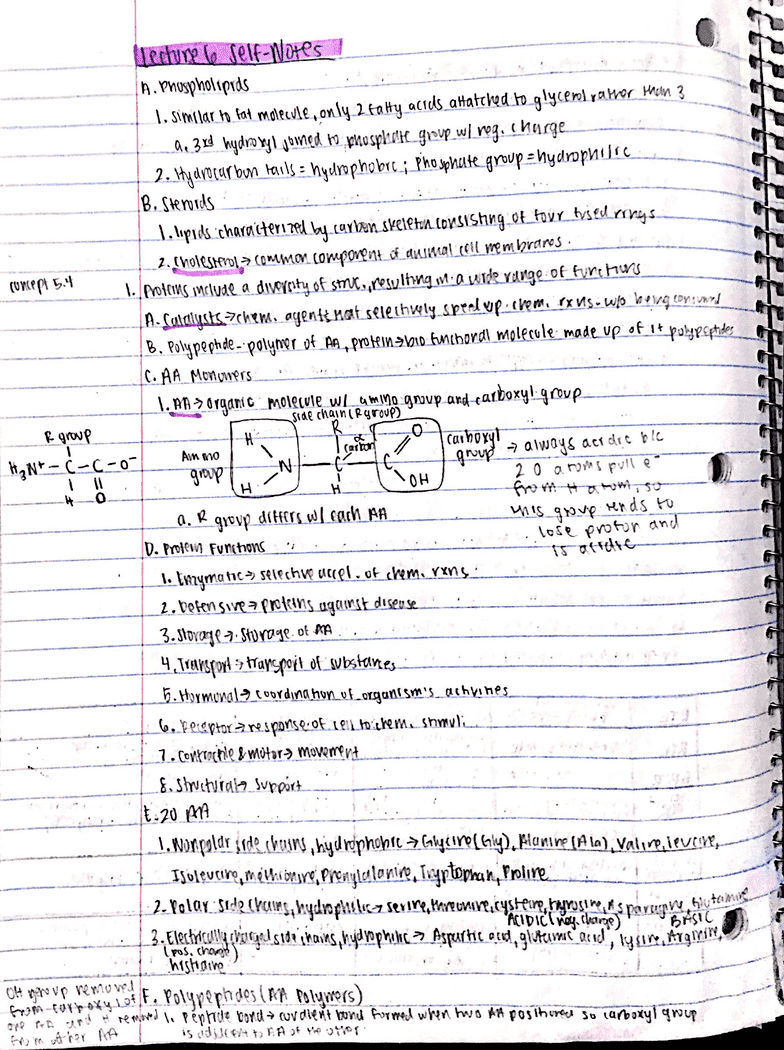 Lecture 6 Self-Notes
A. Phospholipids
1. similar to fat molecule, only 2 fatty acids attatched to glycerol rather than 3
a. 3rd hydroxyl joined to phosphate group w/ neg. charge
2. Hydrocarbon tails = hydrophobic; Phosphate group = hydrophilic
B. Steroids
1. lipids characterized by carbon skeleton consisting of four fused rings
2. Cholesterol → common component of animal cell membranes.
concept 5.4
1. Proteins include a diversity of struc., resulting in a wide range of functions
A. Catalysts → chem. agents that selectively speed up chem. rxns w/o being consumed
B. Polypeptide - polymer of AA, protein → bio functional molecule made up of 1+ polypeptides
C. AA Monomers
1. AA → organic molecule w/ amino group and carboxyl group
side chain (R group)
R group
H₃N⁺ – C – C – O⁻
H O
Amino group
H R O
N C C
H H OH
α carbon
carboxyl group
→ always acidic b/c
2 O atoms pull e⁻
from H atom, so
this group tends to
lose proton and
is acidic
a. R group differs w/ each AA
D. Protein Functions
1. Enzymatic → selective accel. of chem. rxns.
2. Defensive → proteins against disease
3. Storage → storage of AA
4. Transport → transport of substances
5. Hormonal → coordination of organism's activities
6. Receptor → response of cell to chem. stimuli
7. Contractile & motor → movement
8. Structural → support
E. 20 AA
1. Nonpolar side chains, hydrophobic → Glycine (Gly), Alanine (Ala), Valine, leucine,
Isoleucine, methionine, Phenylalanine, Tryptophan, Proline
2. Polar side chains, hydrophilic → serine, threonine, cysteine, tyrosine, Asparagine, Glutamine
ACIDIC (neg. charge) BASIC
3. Electrically charged side chains, hydrophilic → Aspartic acid, glutamic acid, lysine, Arginine,
(pos. charge)
histidine
F. Polypeptides (AA Polymers)
1. Peptide bond → covalent bond formed when two AA positioned so carboxyl group
is adjacent to AA of the other.
OH group removed
from carboxyl of
one AA and H removed
from other AA